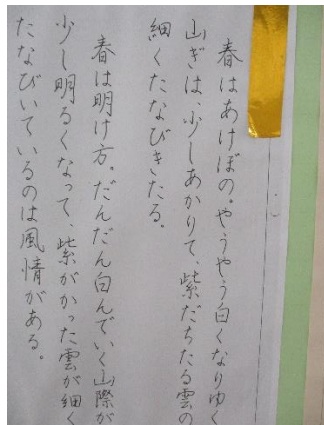 春はあけぼの。やうやう白くなりゆく
山ぎは、少しあかりて、紫だちたる雲の
細くたなびきたる。
春は明け方。だんだん白んでいく山際が
少し明るくなって、紫がかった雲が細く
たなびいているのは風情がある。